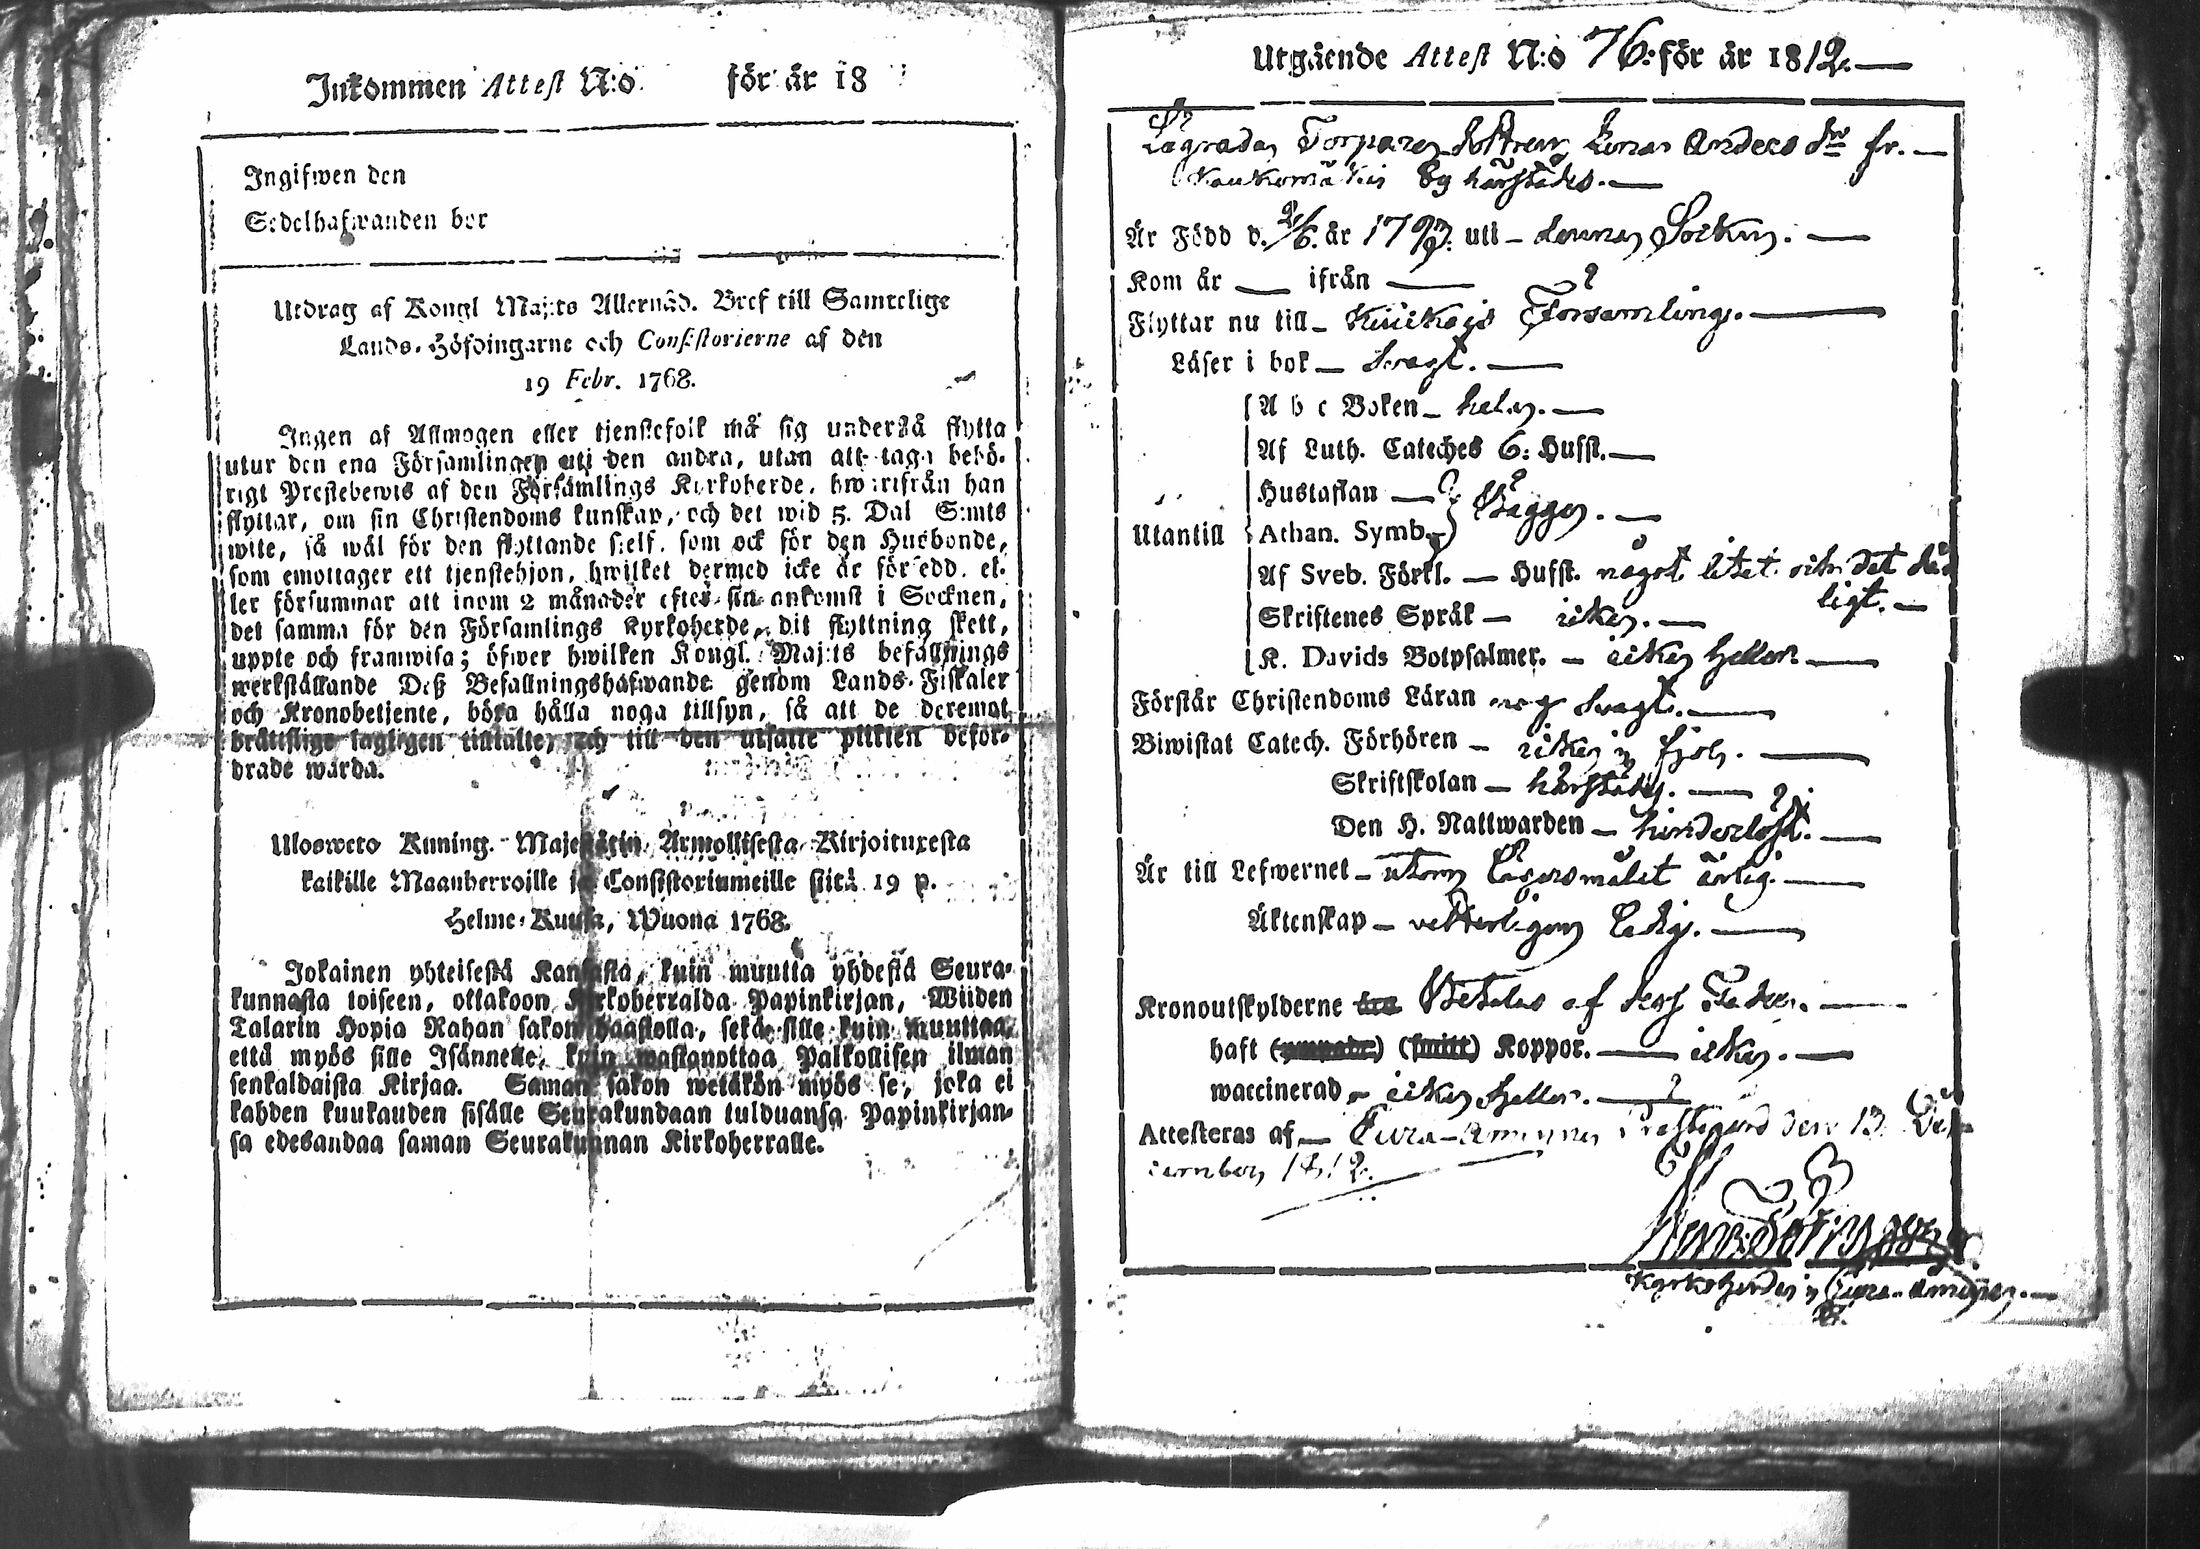 Inkommen Attest N:o för år 18
Ingifwen den
Sedelhafwanden bor
Utdrag af Kongl Maj:ts Allernåd. Bref till Samtelige
Lands-Höfdingarne och Consistorierne af den
19 Febr. 1768.
Ingen af Allmogen eller tjenstefolk må sig understå flytta
utur den ena Församlingen uti den andra, utan att taga behö-
rigt Prestebewis af den Församlings Kyrkoherde, hwarifrån han
flyttar, om sin Christendoms kunskap, och det wid 5. Dal S:mts
wite, så wäl för den flyttande sielf, som ock för den Husbonde,
som emottager ett tjenstehjon, hwilket dermed icke är försedd, el-
ler försummar att inom 2 månader efter sin ankomst i Socknen,
det samma för den Församlings Kyrkoherde, dit flyttning skett,
uppte och framwisa; öfwer hwilken Kongl. Maj:ts befallnings
werkställande Deß Befallningshafwande genom Lands-Fiskaler
och Kronobetjente, böra hålla noga tillsyn, så att de deremot
brättslige lagligen tilltalte, och till den utsatte plikten befor-
drade warda.
Ulosweto Kuning. Majestätin Armollisesta Kirjoituxesta
kaikille Maanherroille ja Consistoriumeille siitä 19 p.
Helme-Kuusa, Wuona 1768.
Jokainen yhteisestä Kansasta, kuin muutta yhdestä Seura-
kunnasta toiseen, ottakoon Kirkoherralda Papinkirjan, Wiiden
Talarin Hopia Rahan sakon haastolla, sekä sille kuin muuttaa,
että myös sille Isännette, kuin wastanottaa Palkollisen ilman
senkaldaista Kirjaa. Saman sakon wetäkön myös se, joka ei
kahden kuukauden sisälle Seurakundaan tulduansa Papinkirjan-
sa edesandaa saman Seurakunnan Kirkoherralle.
Utgående Attest N:o 76: för år 1812.
Lägrada Torpare Dottren Lena Anders dr fr.
Kaukomäki By härstädes.
Är Född d. /6. år 179 uti denna Sockn.
Kom år — ifrån —
Flyttar nu till Kiukais Församling.
Läser i bok — Svagt.
A b c Boken — helen.
Af Luth. Cateches 6: Hufst.
Hustaflan — Bägge.
Utantill Athan. Symb.
Af Sveb. Förkl. — Hufst. något litet och det då-
ligt.
Skriftenes Språk — icke.
K. Davids Botpsalmer. — icke heller.
Förstår Christendoms Läran nog Svagt.
Biwistat Catech. Förhören — icke i fjol.
Skriftskolan — härstädes.
Den H. Nattwarden — hinderlöst.
Är till Lefwernet — utom Lägersmålet ärlig.
Äktenskap — vetterligen Ledig.
Kronoutskylderne Betalas af dess Fader.
haft Koppor. — icke.
waccinerad — icke heller.
Attesteras af — Eura-Åminne Prestegård den 13 De-
cember 1812.
Kyrkoherde i Eura-Åminne.